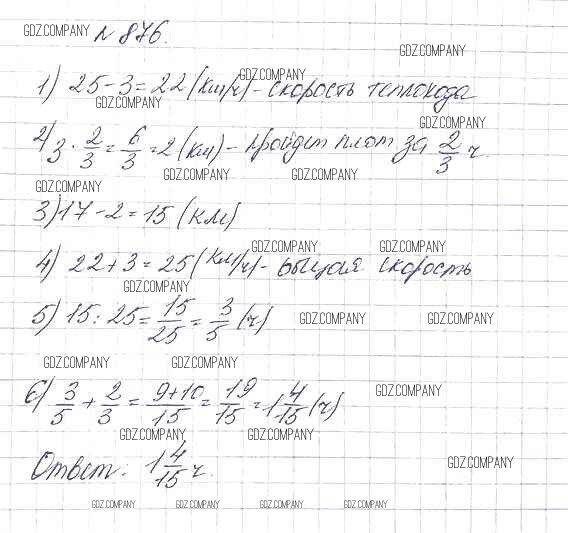 GDZ.COMPANY
N 876.
GDZ.COMPANY
GDZ.COMPANY
1) 25 - 3 = 22 (км/ч) - скорость теплохода
GDZ.COMPANY
GDZ.COMPANY
2) 3 · 2/3 = 6/3 = 2 (км) - пройдет плот за 2/3 ч.
GDZ.COMPANY GDZ.COMPANY
GDZ.COMPANY
3) 17 - 2 = 15 (км)
GDZ.COMPANY GDZ.COMPANY
4) 22 + 3 = 25 (км/ч) - общая скорость
GDZ.COMPANY
5) 15 : 25 = 15/25 = 3/5 (ч)
GDZ.COMPANY GDZ.COMPANY
GDZ.COMPANY GDZ.COMPANY
GDZ.COMPANY
6) 3/5 + 2/3 = 9+10/15 = 19/15 = 1 4/15 (ч)
GDZ.COMPANY GDZ.COMPANY
Ответ: 1 4/15 ч.
GDZ.COMPANY
GDZ.COMPANY GDZ.COMPANY GDZ.COMPANY GDZ.COMPANY